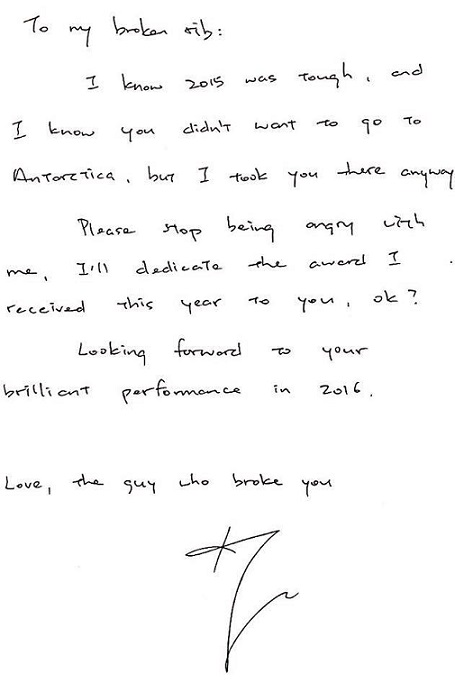 To my broken rib:
I know 2015 was tough, and
I know you didn't want to go to
Antarctica, but I took you there anyway
Please stop being angry with
me, I'll dedicate the award I
received this year to you, ok?
Looking forward to your
brilliant performance in 2016.
Love, the guy who broke you